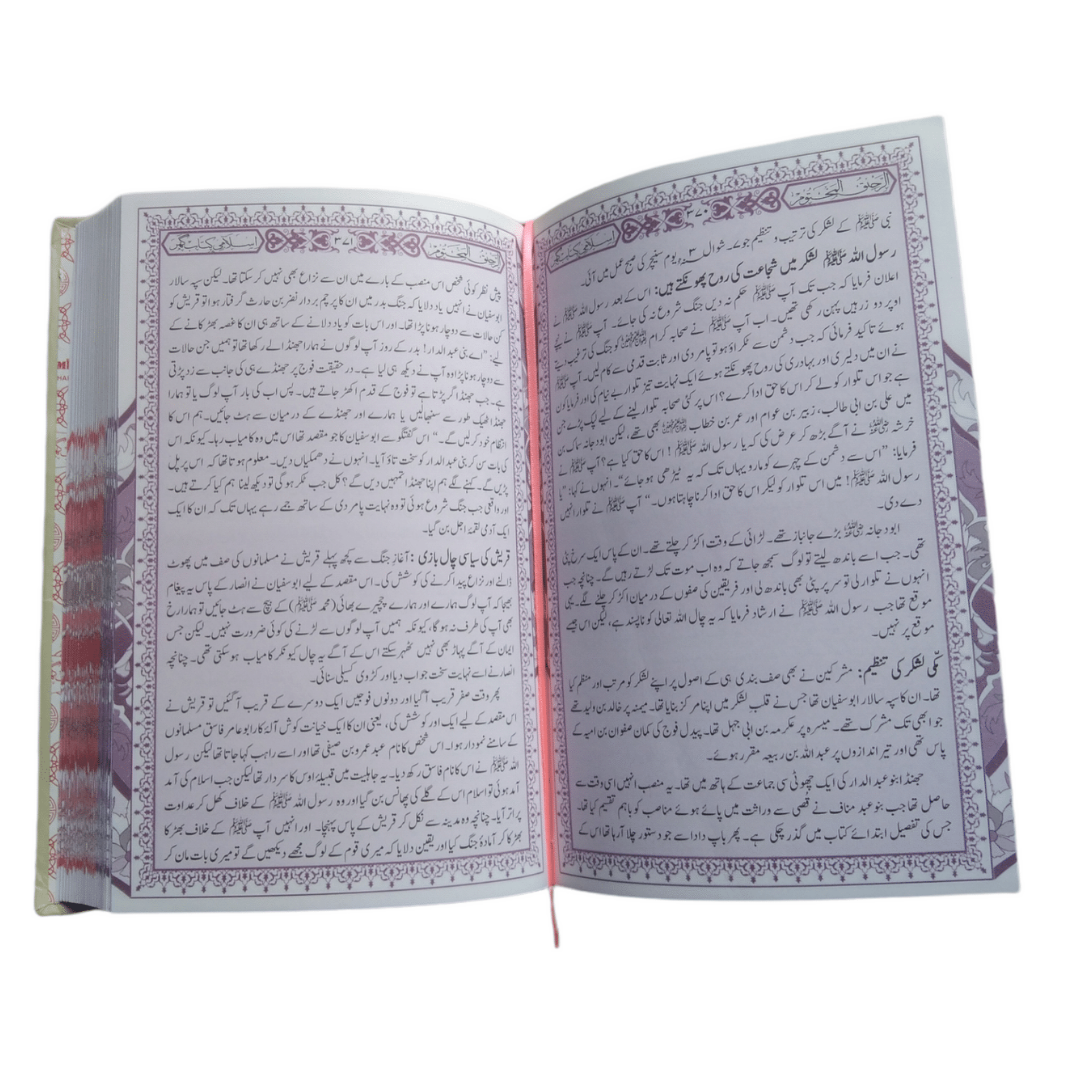 الرحیق المختوم
۳۷۰
اسلامی کتاب گھر
نبی ﷺ کے لشکر کی ترتیب و تنظیم جو ۷۔ شوال ۳ھ یوم سنیچر کی صبح عمل میں آئی۔
رسول اللہ ﷺ لشکر میں شجاعت کی روح پھونکتے ہیں: اس کے بعد رسول اللہ ﷺ نے
اعلان فرمایا کہ جب تک آپ ﷺ حکم نہ دیں جنگ شروع نہ کی جائے۔ آپ ﷺ نے نیچے
اوپر دو زرہیں پہن رکھی تھیں۔ اب آپ ﷺ نے صحابہ کرام کو جنگ کی ترغیب دیتے
ہوئے تاکید فرمائی کہ جب دشمن سے ٹکراؤ ہو تو پامردی اور ثابت قدمی سے کام لیں۔ آپ ﷺ
نے ان میں دلیری اور بہادری کی روح پھونکتے ہوئے ایک نہایت تیز تلوار بے نیام کی اور فرمایا کون
ہے جو اس تلوار کو لے کر اس کا حق ادا کرے؟ اس پر کئی صحابہ تلوار لینے کے لیے لپک پڑے جن
میں علی بن ابی طالب، زبیر بن عوام اور عمر بن خطاب بھی تھے، لیکن ابو دجانہ سماک بن
خرشہ نے آگے بڑھ کر عرض کی کہ یا رسول اللہ ﷺ! اس کا حق کیا ہے؟ آپ ﷺ نے
فرمایا: ”اس سے دشمن کے چہرے کو مارو یہاں تک کہ یہ ٹیڑھی ہو جائے“۔ انہوں نے کہا: ”یا
رسول اللہ ﷺ! میں اس تلوار کو لیکر اس کا حق ادا کرنا چاہتا ہوں۔“ آپ ﷺ نے تلوار انہیں
دے دی۔
ابو دجانہ بڑے جانباز تھے۔ لڑائی کے وقت اکڑ کر چلتے تھے۔ ان کے پاس ایک سرخ پٹی
تھی۔ جب اسے باندھ لیتے تو لوگ سمجھ جاتے کہ وہ اب موت تک لڑتے رہیں گے۔ چنانچہ جب
انہوں نے تلوار لی تو سر پر پٹی بھی باندھ لی اور فریقین کی صفوں کے درمیان اکڑ کر چلنے لگے۔ یہی
موقع تھا جب رسول اللہ ﷺ نے ارشاد فرمایا کہ یہ چال اللہ تعالیٰ کو ناپسند ہے، لیکن اس جیسے
موقع پر نہیں۔
مکّی لشکر کی تنظیم: مشرکین نے بھی صف بندی ہی کے اصول پر اپنے لشکر کو مرتب اور منظم کیا
تھا۔ ان کا سپہ سالار ابو سفیان تھا جس نے قلب لشکر میں اپنا مرکز بنایا تھا۔ میمنہ پر خالد بن ولید تھے
جو ابھی تک مشرک تھے۔ میسرہ پر عکرمہ بن ابی جہل تھا۔ پیدل فوج کی کمان صفوان بن امیہ کے
پاس تھی اور تیر اندازوں پر عبداللہ بن ربیعہ مقرر ہوئے۔
جھنڈا بنو عبدالدار کی ایک چھوٹی سی جماعت کے ہاتھ میں تھا۔ یہ منصب انہیں اسی وقت سے
حاصل تھا جب بنو عبد مناف نے قصی سے وراثت میں پائے ہوئے مناصب کو باہم تقسیم کیا تھا۔
جس کی تفصیل ابتدائے کتاب میں گذر چکی ہے۔ پھر باپ دادا سے جو دستور چلا آرہا تھا اس کے
الرحیق المختوم
۳۷۱
اسلامی کتاب گھر
پیش نظر کوئی شخص اس منصب کے بارے میں ان سے نزاع بھی نہیں کر سکتا تھا۔ لیکن سپہ سالار
ابو سفیان نے انہیں یاد دلایا کہ جنگ بدر میں ان کا پرچم بردار نضر بن حارث گرفتار ہوا تو قریش کو
کن حالات سے دوچار ہونا پڑا تھا۔ اور اس بات کو یاد دلانے کے ساتھ ہی ان کا غصہ بھڑکانے کے
لیے: ”اے بنی عبدالدار! بدر کے روز آپ لوگوں نے ہمارا جھنڈا لے رکھا تھا تو ہمیں جن حالات
سے دوچار ہونا پڑا وہ آپ نے دیکھ ہی لیا ہے۔ در حقیقت فوج پر جھنڈے ہی کی جانب سے زد پڑتی
ہے۔ جب جھنڈا گر پڑتا ہے تو فوج کے قدم اکھڑ جاتے ہیں۔ پس اب کی بار آپ لوگ یا تو ہمارا
جھنڈا ٹھیک طور سے سنبھالیں یا ہمارے اور جھنڈے کے درمیان سے ہٹ جائیں۔ ہم اس کا
انتظام خود کر لیں گے۔“ اس گفتگو سے ابو سفیان کا جو مقصد تھا اس میں وہ کامیاب رہا۔ کیونکہ اس
کی بات سن کر بنی عبدالدار کو سخت تاؤ آیا۔ انہوں نے دھمکیاں دیں۔ معلوم ہوتا تھا کہ اس پر پل
پڑیں گے۔ کہنے لگے ہم اپنا جھنڈا تمہیں دیں گے؟ کل جب ٹکر ہوگی تو دیکھ لینا ہم کیا کرتے ہیں۔
اور واقعی جب جنگ شروع ہوئی تو وہ نہایت پامردی کے ساتھ جمے رہے یہاں تک کہ ان کا ایک
ایک آدمی لقمۂ اجل بن گیا۔
قریش کی سیاسی چال بازی: آغاز جنگ سے کچھ پہلے قریش نے مسلمانوں کی صف میں پھوٹ
ڈالنے اور نزاع پیدا کرنے کی کوشش کی۔ اس مقصد کے لیے ابو سفیان نے انصار کے پاس یہ پیغام
بھیجا کہ آپ لوگ ہمارے اور ہمارے چچیرے بھائی (محمد ﷺ) کے بیچ سے ہٹ جائیں تو ہمارا رخ
بھی آپ کی طرف نہ ہوگا، کیونکہ ہمیں آپ لوگوں سے لڑنے کی کوئی ضرورت نہیں۔ لیکن جس
ایمان کے آگے پہاڑ بھی نہیں ٹھہر سکتے اس کے آگے یہ چال کیونکر کامیاب ہو سکتی تھی۔ چنانچہ
انصار نے اسے نہایت سخت جواب دیا اور کڑوی کسیلی سنائی۔
پھر وقت صفر قریب آگیا اور دونوں فوجیں ایک دوسرے کے قریب آگئیں تو قریش نے
اس مقصد کے لیے ایک اور کوشش کی، یعنی ان کا ایک خیانت کوش آلۂ کار ابو عامر فاسق مسلمانوں
کے سامنے نمودار ہوا۔ اس شخص کا نام عبد عمرو بن صیفی تھا اور اسے راہب کہا جاتا تھا لیکن رسول
اللہ ﷺ نے اس کا نام فاسق رکھ دیا۔ یہ جاہلیت میں قبیلۂ اوس کا سردار تھا لیکن جب اسلام کی آمد
آمد ہوئی تو اسلام اس کے گلے کی پھانس بن گیا اور وہ رسول اللہ ﷺ کے خلاف کھل کر عداوت
پر اتر آیا۔ چنانچہ وہ مدینہ سے نکل کر قریش کے پاس پہنچا۔ اور انہیں آپ ﷺ کے خلاف بھڑکا
بھڑکا کر آمادۂ جنگ کیا اور یقین دلایا کہ میری قوم کے لوگ مجھے دیکھیں گے تو میری بات مان کر